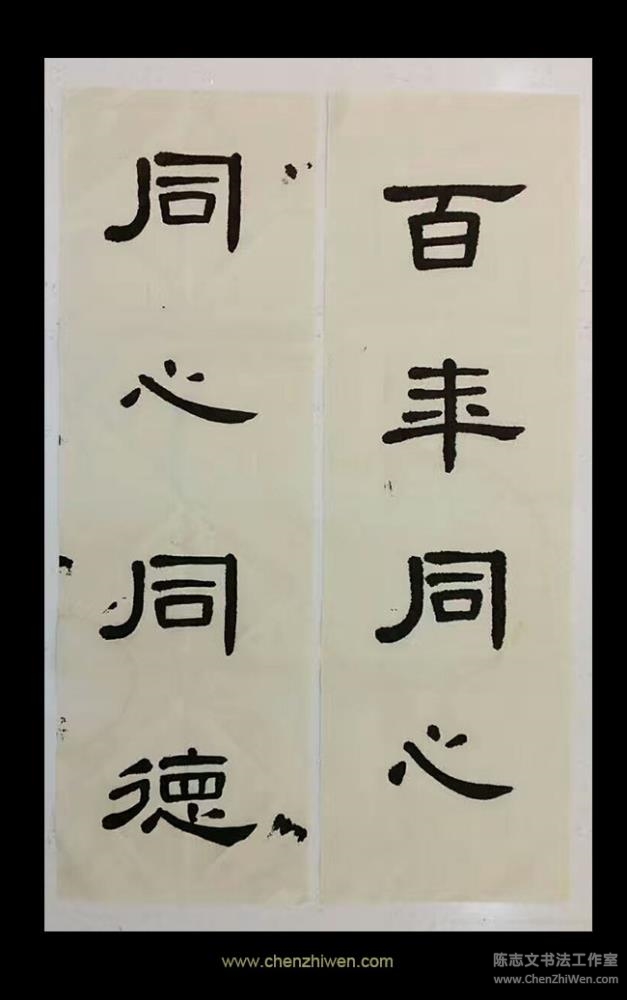 百年同心
同心同德
www.chenzhiwen.com
陈志文书法工作室
www.ChenZhiWen.com